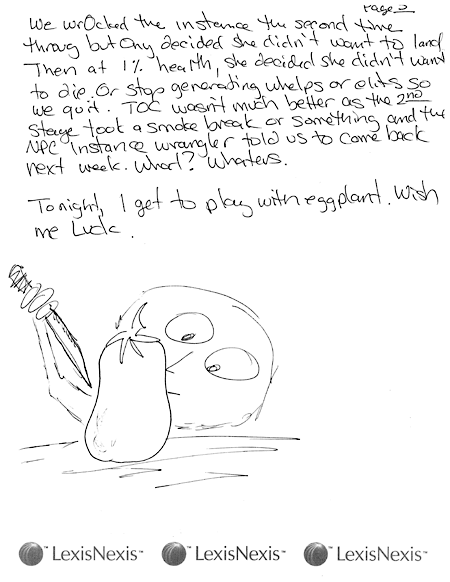 Page 2
We wr0cked the instance the second time
throug but Ony decided she didn't want to land
Then at 1% health, she decided she didn't want
to die. Or stop generating whelps or elits so
we quit. TOC wasn't much better as the 2nd
stage took a smoke break or something and the
NPC instance wrangler told us to come back
next week. What? Whaters.
Tonight, I get to play with eggplant. Wish
me Luck.
LexisNexis™ LexisNexis™ LexisNexis™